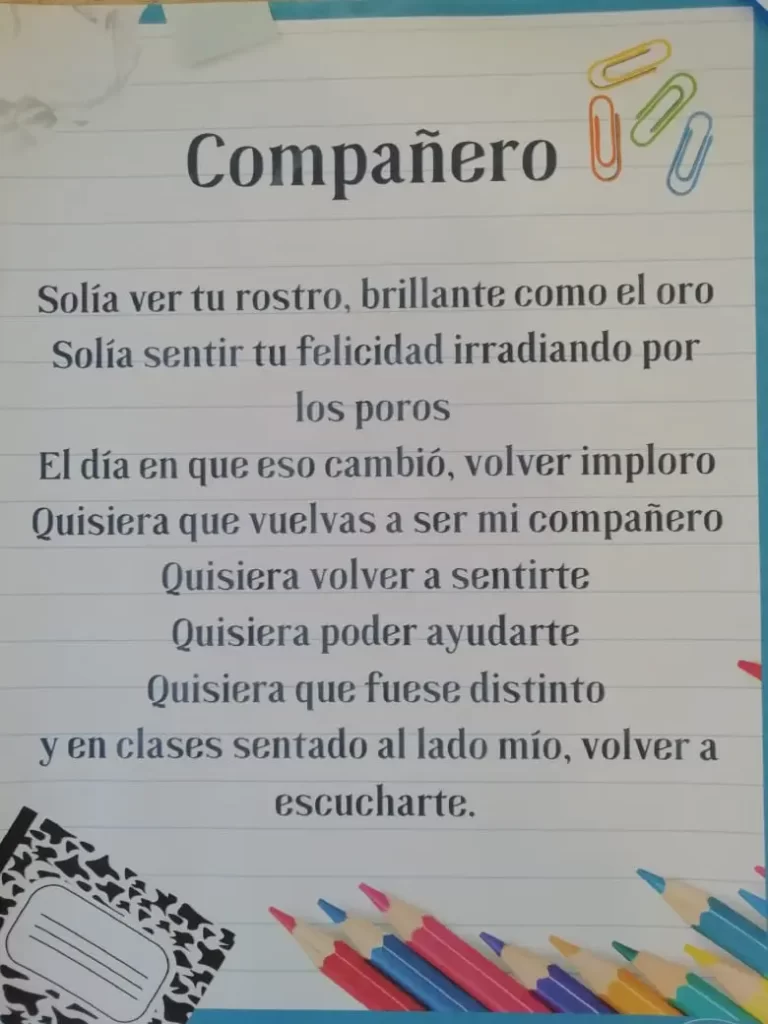 Compañero
Solía ver tu rostro, brillante como el oro
Solía sentir tu felicidad irradiando por
los poros
El día en que eso cambió, volver imploro
Quisiera que vuelvas a ser mi compañero
Quisiera volver a sentirte
Quisiera poder ayudarte
Quisiera que fuese distinto
y en clases sentado al lado mío, volver a
escucharte.